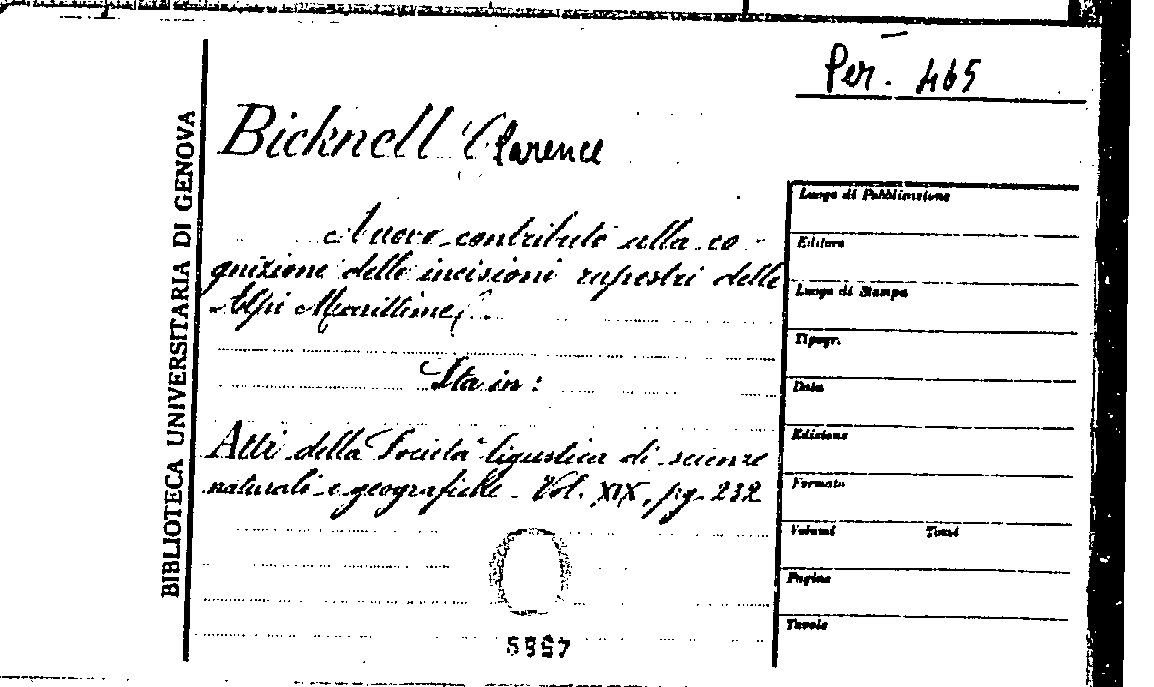 Per. 465
BIBLIOTECA UNIVERSITARIA DI GENOVA
Bicknell Clarence
Nuovo contributo alla co-
gnizione delle incisioni rupestri delle
Alpi Marittime.
Sta in:
Atti della Società ligustica di scienze
naturali e geografiche - Vol. XIX, pg. 232
Luogo di Pubblicazione
Editore
Luogo di Stampa
Tipogr.
Data
Edizione
Formato
Volumi Tomi
Pagine
Tavole